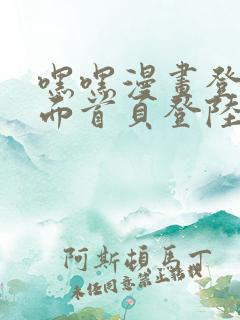 嘿嘿漫畫登
而首頁登陸
阿斯頓馬丁
未经同意禁止转载